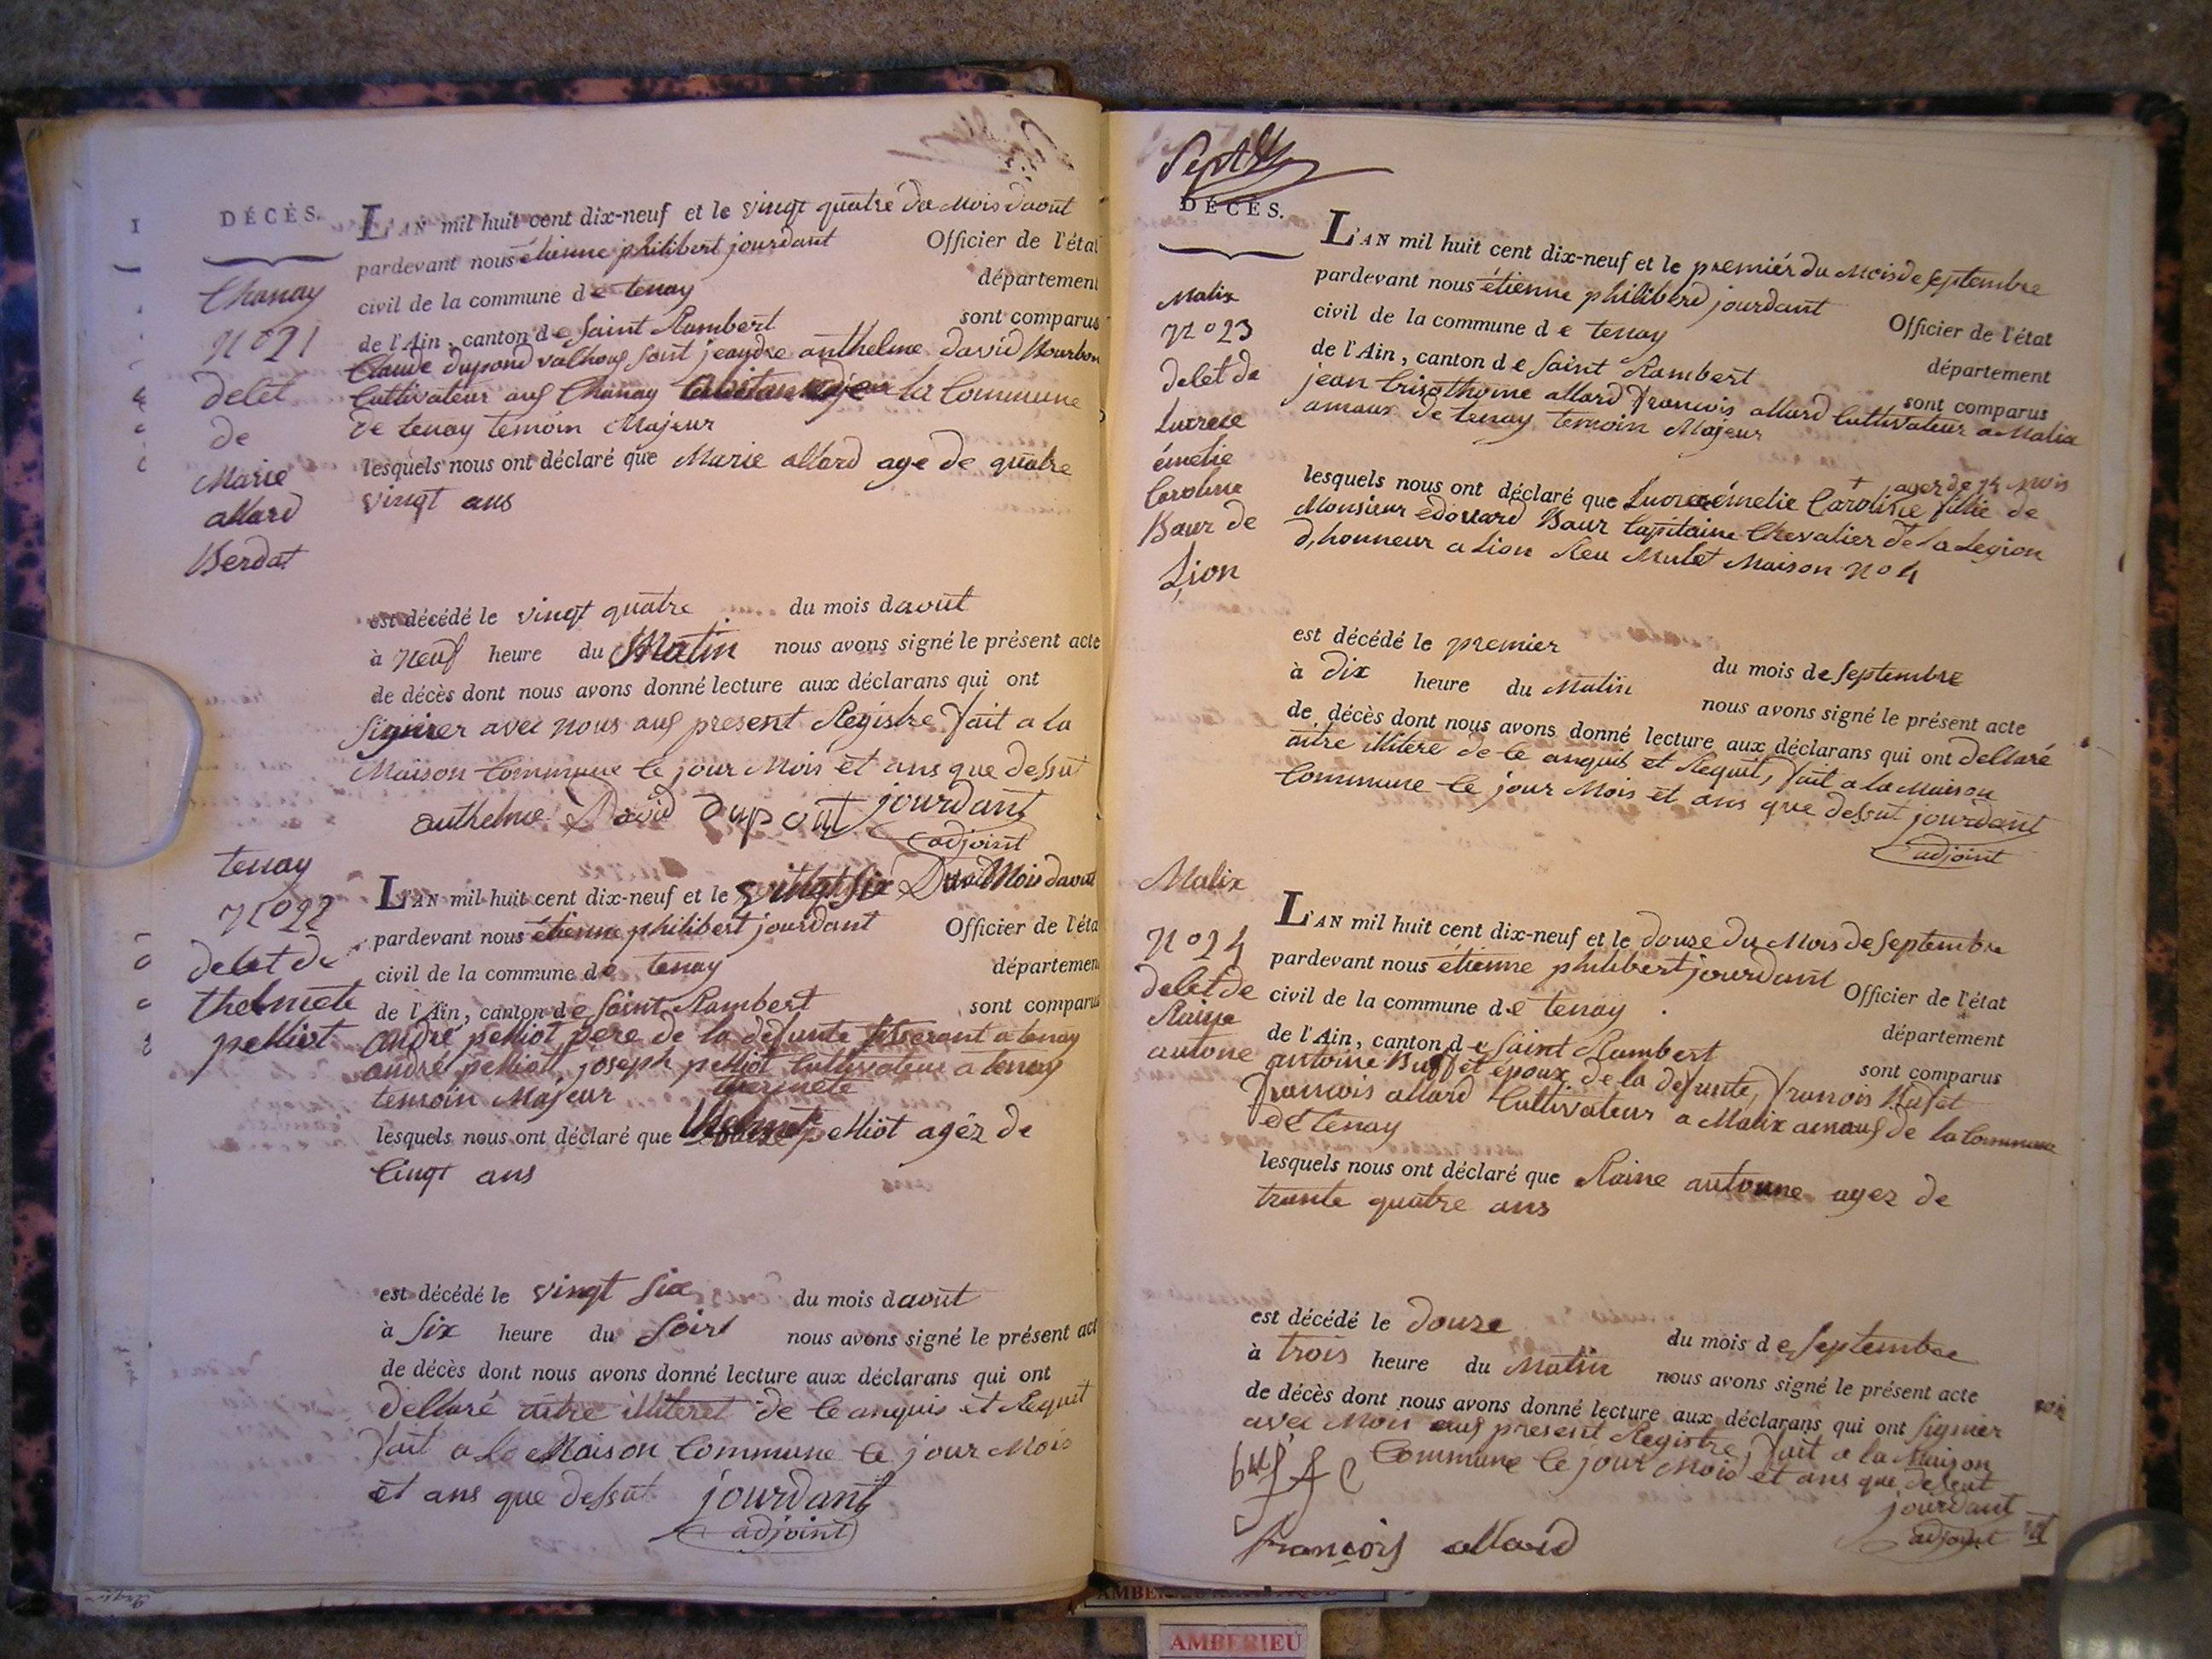 DÉCÈS.
Chanay
N° 21
delet
de
Marie
allard
Berdat
L'AN mil huit cent dix-neuf et le vingt quatre du Mois daout
pardevant nous étienne philibert jourdant Officier de l'état
civil de la commune de tenay département
de l'Ain, canton de Saint Rambert sont comparus
Claude dupond anthelme david Bourbon
Cultivateur aus Chanay la Commune
de tenay temoin Majeur
lesquels nous ont déclaré que Marie allard age de quatre
vingt ans
est décédé le vingt quatre du mois daout
à neuf heure du Matin nous avons signé le présent acte
de décès dont nous avons donné lecture aux déclarans qui ont
Signier avec nous aus present Registre fait a la
Maison Commune le jour Mois et ans que dessut
anthelme David dupont jourdant
adjoint
tenay
N° 22
delet de
thelmete
pelliot
L'AN mil huit cent dix-neuf et le vingt Six Du Mois daout
pardevant nous étienne philibert jourdant Officier de l'éta
civil de la commune de tenay départemen
de l'Ain, canton de Saint Rambert sont comparus
andré pelliot pere de la defunte tisserant a tenay
andré pelliot joseph pelliot Cultivateur a tenay
temoin Majeur
lesquels nous ont déclaré que pelliot agéz de
Cingt ans
est décédé le vingt Six du mois daout
à Six heure du Soirt nous avons signé le présent act
de décès dont nous avons donné lecture aux déclarans qui ont
dellaré aitre illiteret de le anquis et Requit
fait a la Maison Commune le jour Mois
et ans que dessut jourdant
adjoint
DÉCÈS.
Malix
N° 23
delet de
Lucrece
émelie
Caroline
Baur de
Lion
L'AN mil huit cent dix-neuf et le premiér du Mois de Septembre
pardevant nous étienne philiberd jourdant Officier de l'état
civil de la commune de tenay département
de l'Ain, canton de Saint Rambert sont comparus
jean Crisothome allard francois allard Cultivateur a Malix
amaux de tenay temoin Majeur
+ agez de 14 Mois
lesquels nous ont déclaré que Lucrece émelie Caroline fillie de
Monsieur édouard Baur Capitaine Chevalier de la Legion
d,honneur a Lion Reu Mulet Maison n° 4
est décédé le premier du mois de Septembre
à dix heure du Matin nous avons signé le présent acte
de décès dont nous avons donné lecture aux déclarans qui ont dellaré
aitre illitere de le anquis et Requit, fait a la Maison
Commune le jour Mois et ans que dessut jourdant
adjoint
Malix
N° 24
delet de
Raine
antone
L'AN mil huit cent dix-neuf et le douze du Mois de Septembre
pardevant nous étienne philibert jourdant Officier de l'état
civil de la commune de tenay département
de l'Ain, canton de Saint Rambert sont comparus
antoine Buffet époux de la defunte, francois Bufet
francois allard Cultivateur a Malix amaus de la Commune
de tenay
lesquels nous ont déclaré que Raine antonne agez de
trante quatre ans
est décédé le douze du mois de Septembre
à trois heure du Matin nous avons signé le présent acte
de décès dont nous avons donné lecture aux déclarans qui ont Signier
avec Mois aus present Registre, fait a la Maison
Commune le jour Mois et ans que dessut
jourdant
adjoint
francois allard
AMBERIEU